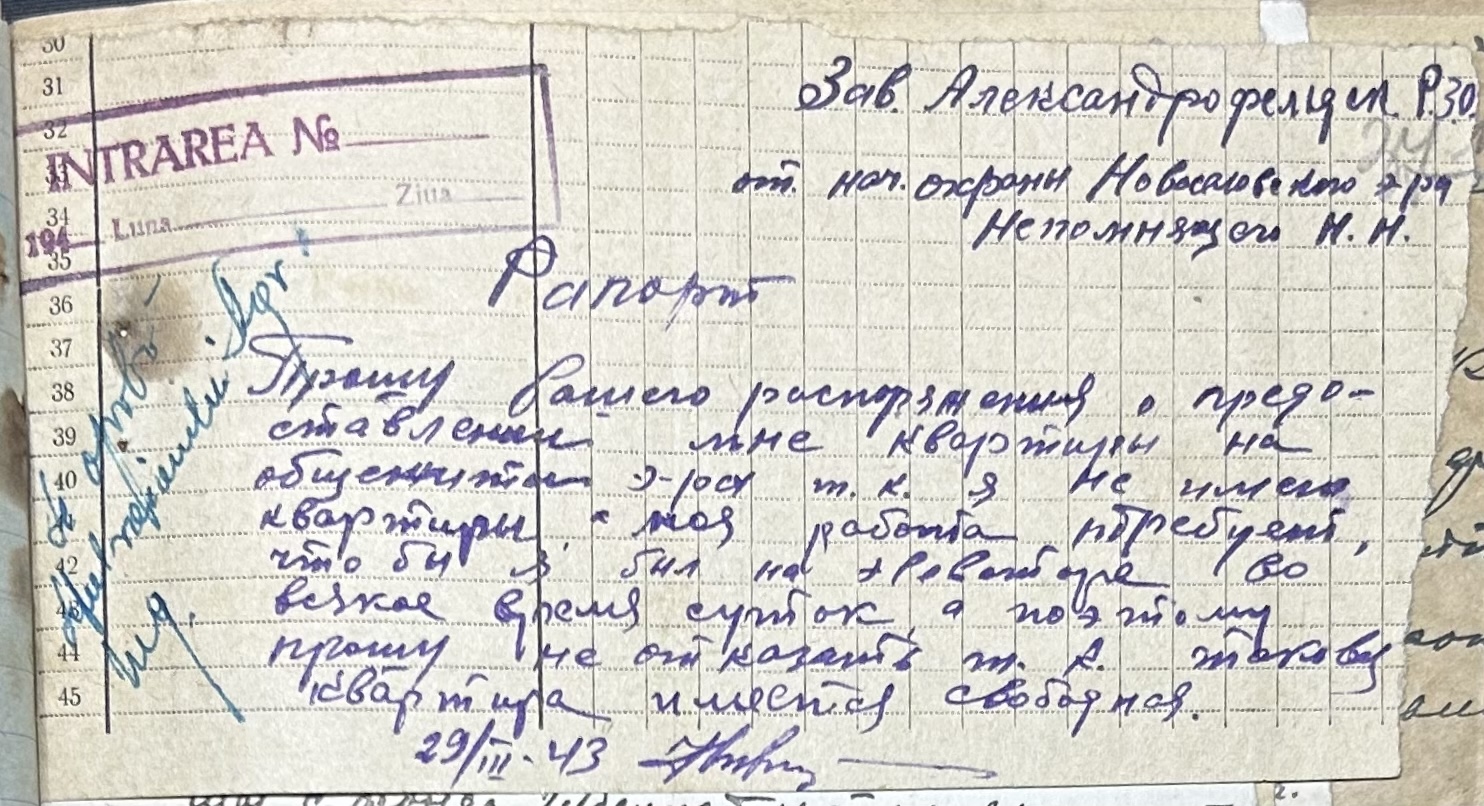 30
31
32
33
34
35
36
37
38
39
40
42
43
44
45
INTRAREA №
Ziua
Luna
194
Зав. Александрофельдск Р.З.О.
от. нач. охраны Новосаговского э-ра
Непомнящего Н. Н.
Рапорт
Прошу Вашего распоряжения о предо-
ставлении мне квартиры на
общежитии э-ра т. к. я не имею
квартиры, а моя работа требует,
что бы я был на элеваторе во
всякое время суток, а поэтому
прошу не отказать т. к. таковая
квартира имеется свободная.
29/III-43